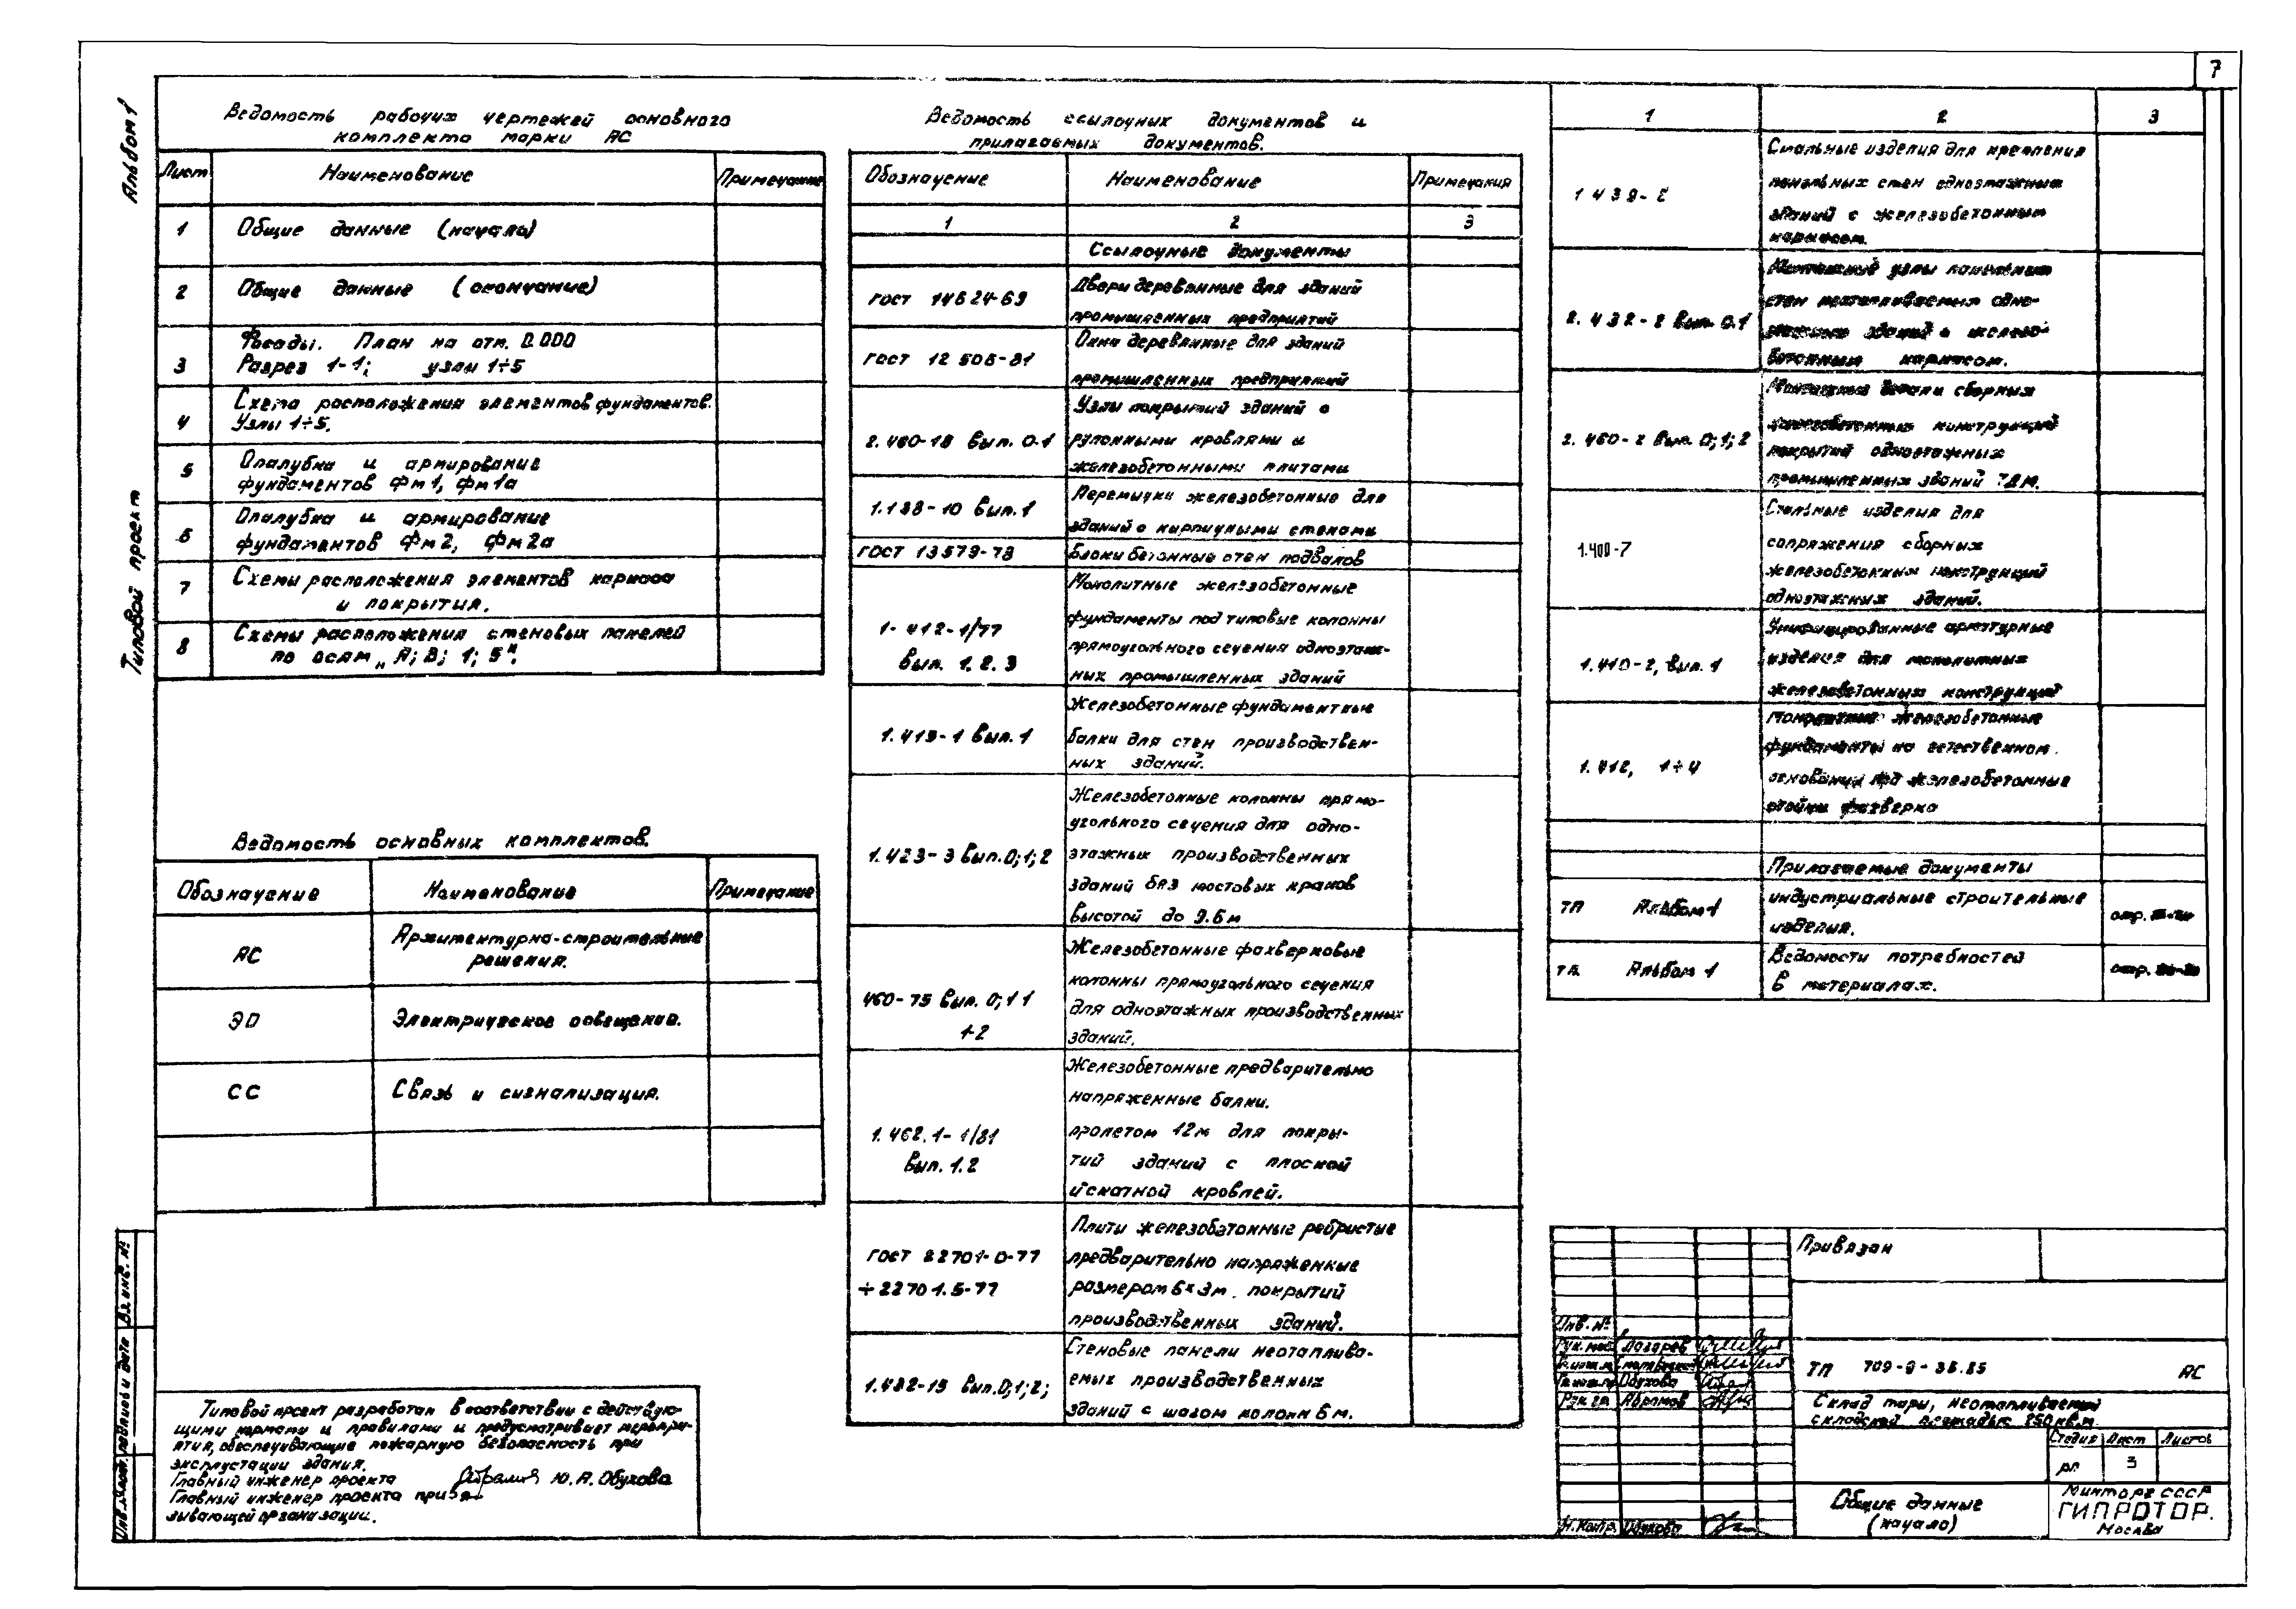 7
Альбом 1
Типовой проект
Ведомость рабочих чертежей основного
комплекта марки АС
Лист Наименование Примечание
1 Общие данные (начало)
2 Общие данные (окончание)
3 Фасады. План на отм. 0.000
Разрез 1-1; узлы 1÷5
4 Схема расположения элементов фундаментов.
Узлы 1÷5.
5 Опалубка и армирование
фундаментов Фм1, Фм1а
6 Опалубка и армирование
фундаментов Фм2, Фм2а
7 Схемы расположения элементов каркаса
и покрытия.
8 Схемы расположения стеновых панелей
по осям „А; В; 1; 5".
Ведомость основных комплектов.
Обозначение Наименование Примечание
АС Архитектурно-строительные
решения.
ЭО Электрическое освещение.
СС Связь и сигнализация.
Типовой проект разработан в соответствии с действую-
щими нормами и правилами и предусматривает меропри-
ятия, обеспечивающие пожарную безопасность при
эксплуатации здания.
Главный инженер проекта Ю.А. Обухова
Главный инженер проекта привя-
зывающей организации.
Инв. № подл. Подпись и дата Вз. инв. №
Ведомость ссылочных документов и
прилагаемых документов.
Обозначение Наименование Примечания
1 2 3
Ссылочные документы
ГОСТ 14624-69 Двери деревянные для зданий
промышленных предприятий
ГОСТ 12506-81 Окна деревянные для зданий
промышленных предприятий
2.460-18 Вып. 0.1 Узлы покрытий зданий с
рулонными кровлями и
железобетонными плитами
1.138-10 Вып.1 Перемычки железобетонные для
зданий с кирпичными стенами
ГОСТ 13579-78 Блоки бетонные стен подвалов
1-412-1/77 Вып. 1.2.3 Монолитные железобетонные
фундаменты под типовые колонны
прямоугольного сечения одноэтаж-
ных промышленных зданий
1.415-1 Вып.1 Железобетонные фундаментные
балки для стен производствен-
ных зданий.
1.423-3 Вып.0;1;2 Железобетонные колонны прямо-
угольного сечения для одно-
этажных производственных
зданий без мостовых кранов
высотой до 9.6м
460-75 Вып. 0;1 1 1-2 Железобетонные фахверковые
колонны прямоугольного сечения
для одноэтажных производственных
зданий.
1.462.1-1/81 Вып. 1.2 Железобетонные предварительно
напряженные балки.
пролетом 12м для покры-
тий зданий с плоской
и скатной кровлей.
ГОСТ 22701-0-77 Плиты железобетонные ребристые
÷22701.5-77 предварительно напряженные
размером 6×3м. покрытий
производственных зданий.
1.432-15 Вып.0;1;2; Стеновые панели неотаплива-
емых производственных
зданий с шагом колонн 6м.
1 2 3
1 439-2 Стальные изделия для крепления
панельных стен одноэтажных
зданий с железобетонным
каркасом.
2.432-2 Вып. 0.1 Монтажные узлы панельных
стен неотапливаемых одно-
этажных зданий с железо-
бетонным каркасом.
2.460-2 Вып. 0;1;2 Монтажные детали сборных
железобетонных конструкций
покрытий одноэтажных
промышленных зданий
1.400-7 Стальные изделия для
сопряжения сборных
железобетонных конструкций
одноэтажных зданий.
1.410-2, вып. 1 Унифицированные арматурные
изделия для монолитных
железобетонных конструкций
1.412, 1÷4 Монолитные железобетонные
фундаменты на естественном
основании под железобетонные
стойки фахверка
Прилагаемые документы
ТП Альбом 1 индустриальные строительные
изделия. стр.
ТП Альбом 1 Ведомости потребностей
в материалах. стр.
Привязан
Инв. №
Рук. мас. Лазарев
Гл.инж.м.
Гл.инж.пр. Обухова
Рук. гр. Абрамов
Н. Контр. Обухова
ТП 709-9-38.85 АС
Склад тары, неотапливаемый
складской площадью 250 кв.м.
Стадия Лист Листов
РП 3
Общие данные
(начало)
Минторг СССР
ГИПРОТОР.
Москва